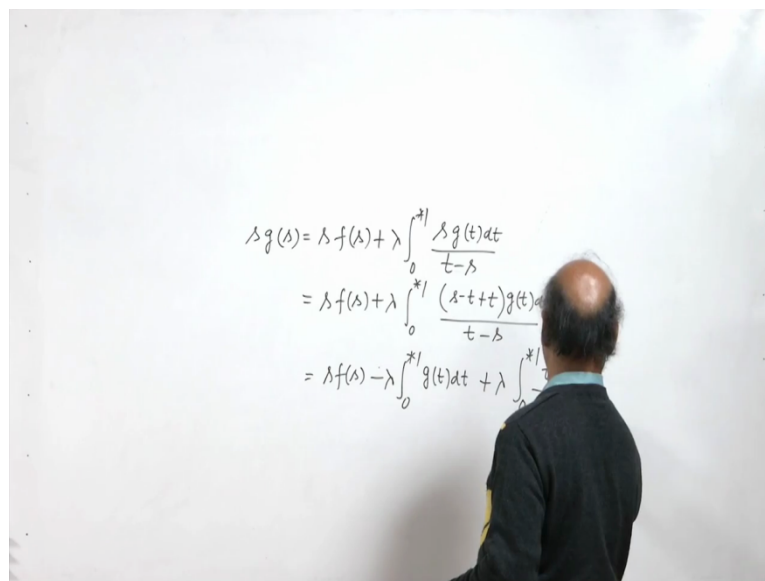 s g(s) = s f(s) + λ ∫₀^{*1} s g(t) dt / (t-s)
= s f(s) + λ ∫₀^{*1} (s-t+t) g(t) d / (t-s)
= s f(s) - λ ∫₀^{*1} g(t) dt + λ ∫₀^{*1} t